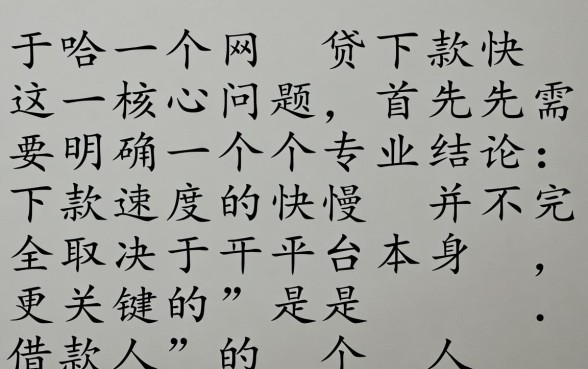 于哈一个网 贷下款快
这一核心问题，首先先需
要明确一个个专业结论：
下款速度的快慢 并不完
全取决于平平台本身 ，
更关键的”是是 .
借款人”的 个 人